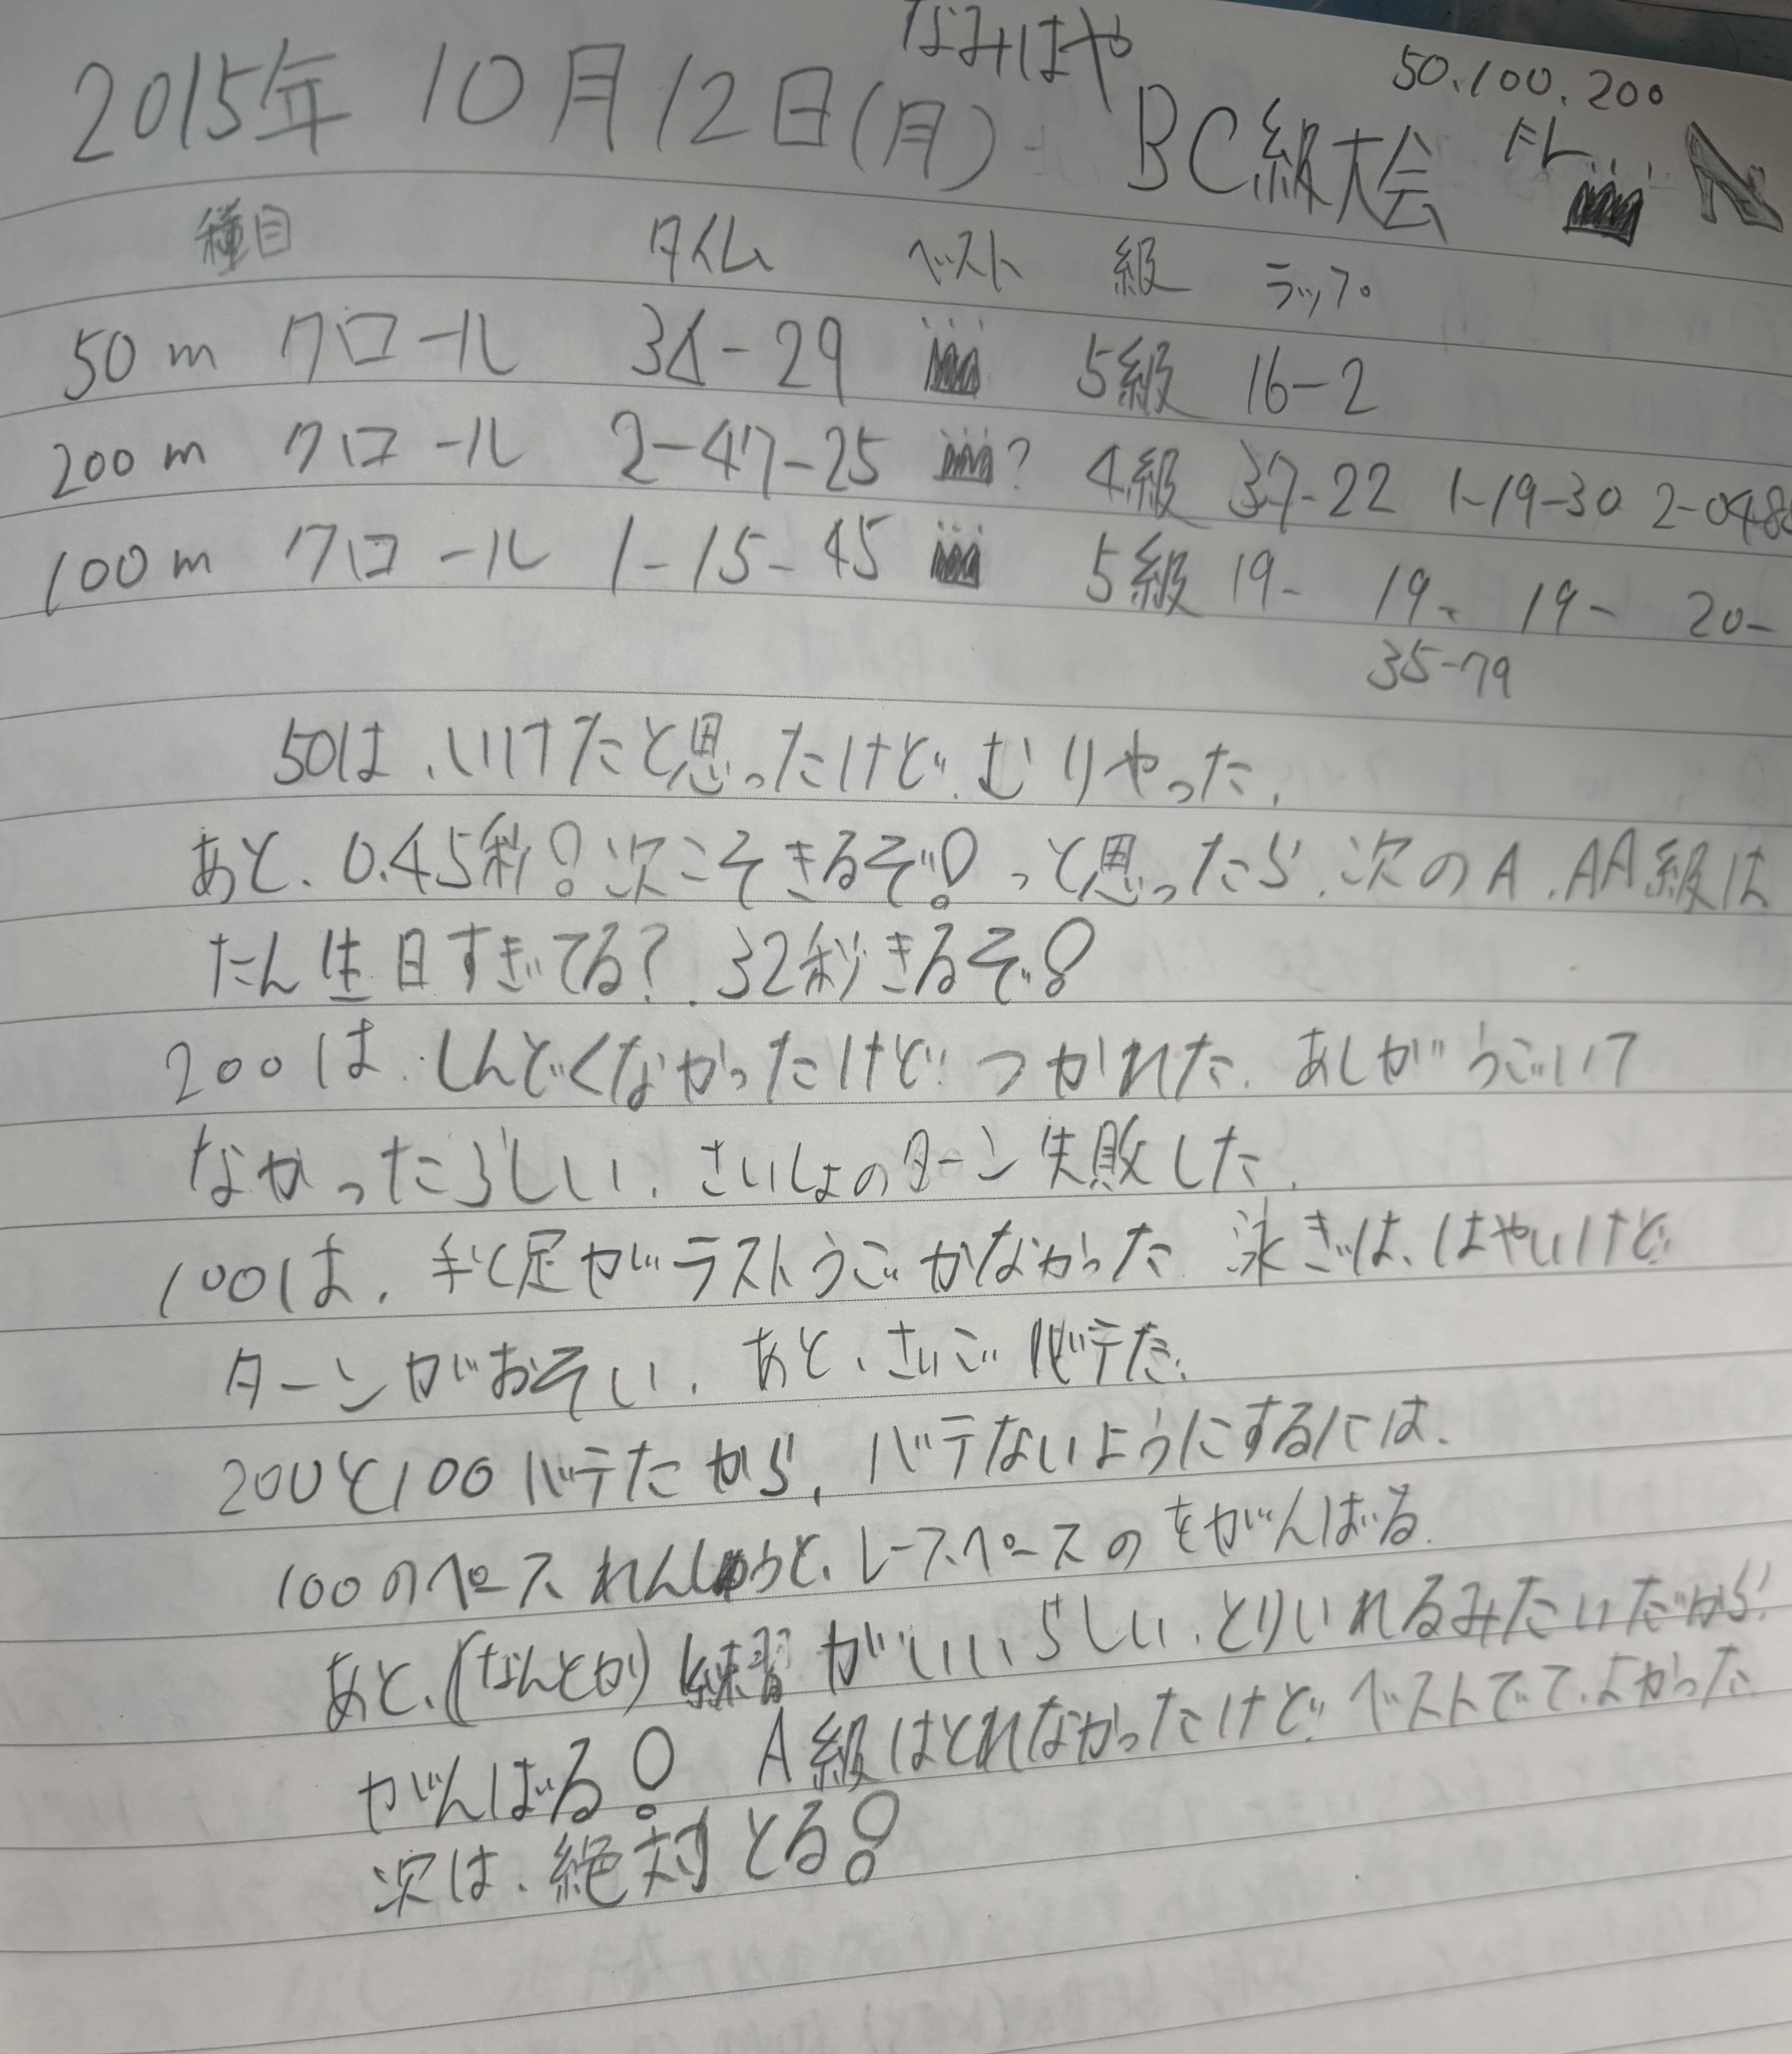 なみはや
50.100.200
2015年 10月12日(月) BC級大会 FL
種目 タイム ベスト 級 ラップ
50m クロール 34-29 5級 16-2
200m クロール 2-47-25 ? 4級 37-22 1-19-30 2-048
100m クロール 1-15-45 5級 19- 19- 19- 20-
35-79
50は、いけたと思ったけど、むりやった、
あと、0.45秒！次こそきるぞ！っと思ったら、次のA、AA級は
たん生日すぎてる？、32秒きるぞ！
200は、しんどくなかったけど、つかれた、あしがうごいて
なかったらしい、さいしょのターン失敗した、
100は、手と足がラストうごかなかった 泳ぎは、はやいけど、
ターンがおそい、あと、さいごバテた、
200と100バテたから、バテないようにするには、
100のペースれんしゅうと、レースペースのをがんばる、
あと、(なんとか)練習がいいらしい、とりいれるみたいだから
がんばる！ A級はとれなかったけど、ベストでて、よかった
次は、絶対とる！